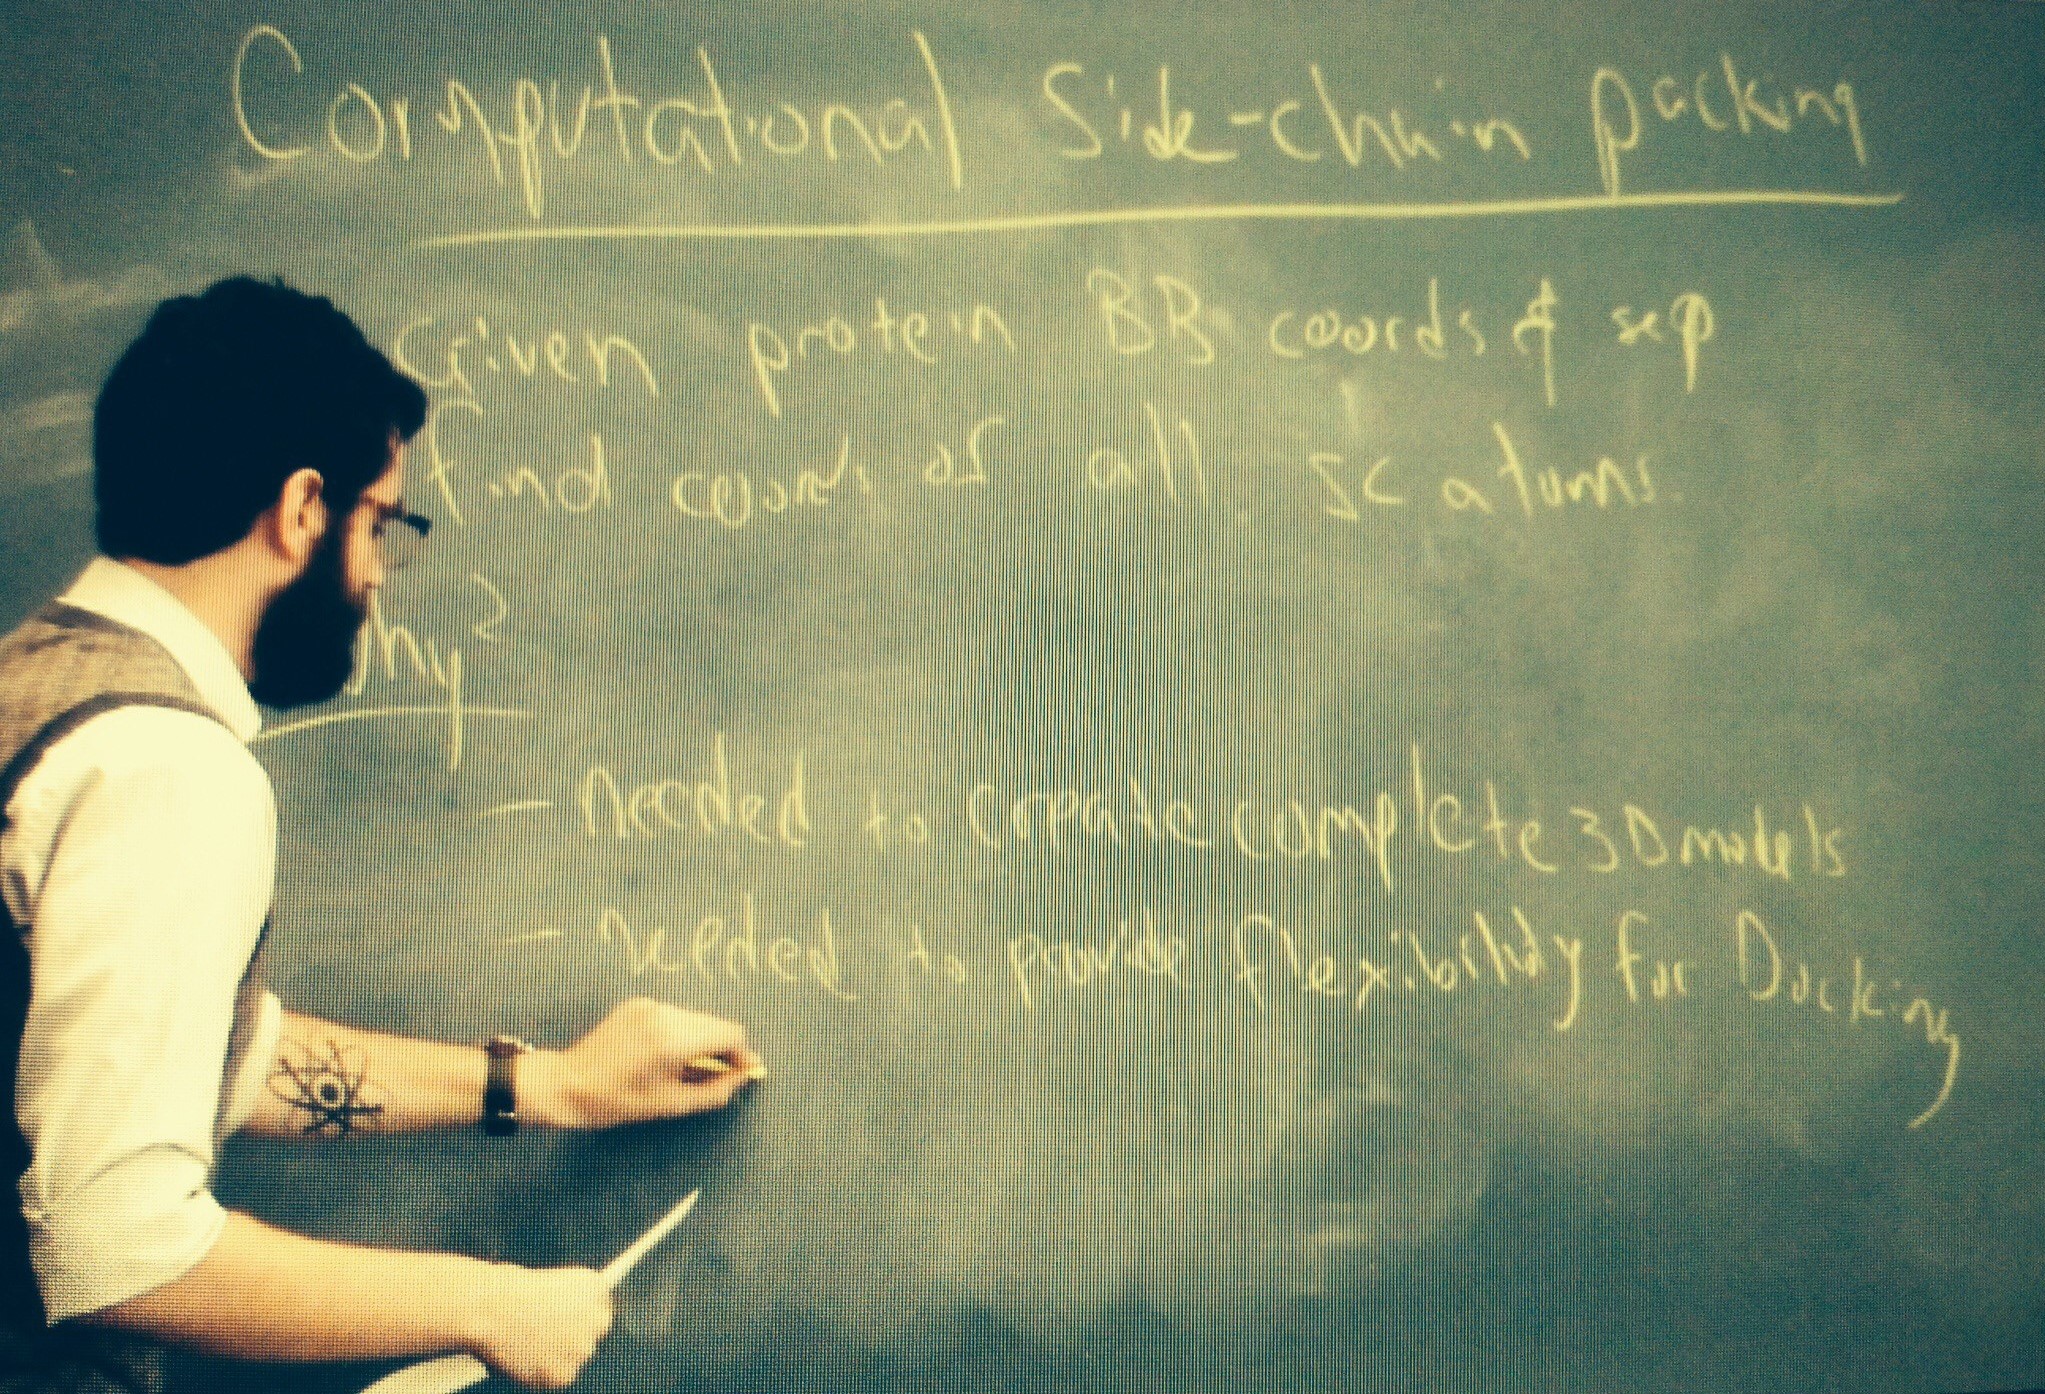 Computational Side-chain packing
Given protein BB coords & seq
find coords of all sc atoms.
Why?
- needed to create complete 3D models
- needed to provide flexibility for Docking